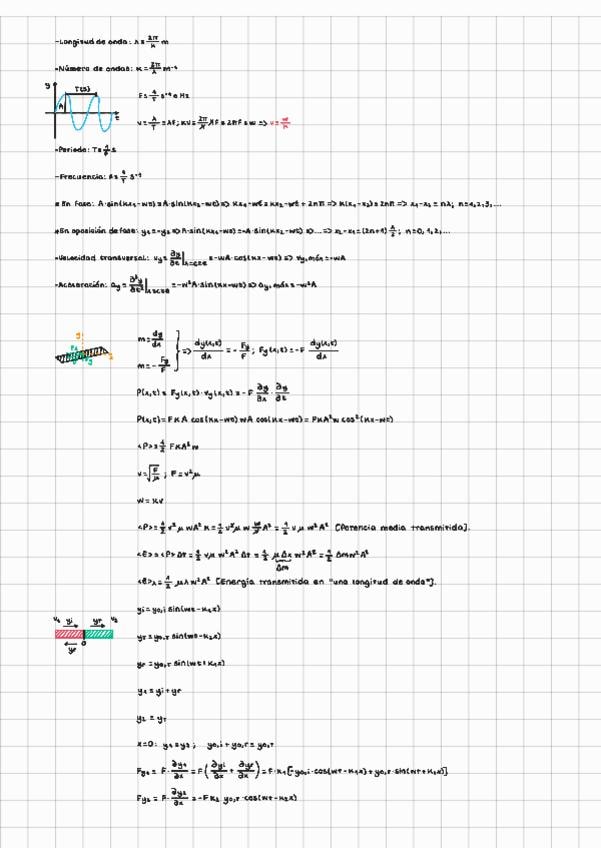 -Longitud de onda: λ = 2π/k m
-Número de ondas: k = 2π/λ m⁻¹
y T(s)
F = 1/T s⁻¹ o Hz
A
t
v = λ/T = λF; kv = 2π/λ λF = 2πF = w => v = w/k
-Periodo: T = 1/F s
-Frecuencia: F = 1/T s⁻¹
* En fase: A·sin(kx₁-wt) = A·sin(kx₂-wt) => kx₁-wt = kx₂-wt + 2nπ => k(x₁-x₂) = 2nπ => x₁-x₂ = nλ; n=1,2,3,...
*En oposición de fase: y₁ = -y₂ => A·sin(kx₁-wt) = -A·sin(kx₂-wt) => ... => x₂-x₁ = (2n+1) λ/2; n=0,1,2,...
-Velocidad transversal: vy = ∂y/∂t |x=cte = -wA·cos(kx-wt) => vy,máx = -wA
-Aceleración: ay = ∂²y/∂t² |x=cte = -w²A·sin(kx-wt) => ay,máx = -w²A
m = dy/dx
m = -Fy/F
=> dy(x,t)/dx = -Fy/F; Fy(x,t) = -F dy(x,t)/dx
P(x,t) = Fy(x,t)·vy(x,t) = -F ∂y/∂x · ∂y/∂t
P(x,t) = FkA cos(kx-wt) wA cos(kx-wt) = FkA²w cos²(kx-wt)
<P> = 1/2 FkA²w
v = √(F/μ); F = v²μ
w = kv
<P> = 1/2 v²μ wA² k = 1/2 v²μ w w/v A² = 1/2 v μ w²A² [Potencia media transmitida].
<E> = <P> Δt = 1/2 vμ w²A² Δt = 1/2 μ Δx w²A² = 1/2 Δm w²A²
Δm
<E>λ = 1/2 μλ w²A² [Energía transmitida en "una longitud de onda"].
yi = y₀,i sin(wt-k₁x)
v₁ yi yt v₂
yr 0
yT = y₀,T sin(wt-k₂x)
yr = y₀,r sin(wt+k₁x)
y₁ = yi + yr
y₂ = yT
x=0: y₁ = y₂; y₀,i + y₀,r = y₀,T
Fy₁ = F·∂y₁/∂x = F(∂yi/∂x + ∂yr/∂x) = F·k₁[-y₀,i·cos(wt-k₁x) + y₀,r·sin(wt+k₁x)]
Fy₂ = F·∂y₂/∂x = -Fk₂ y₀,T·cos(wt-k₂x)